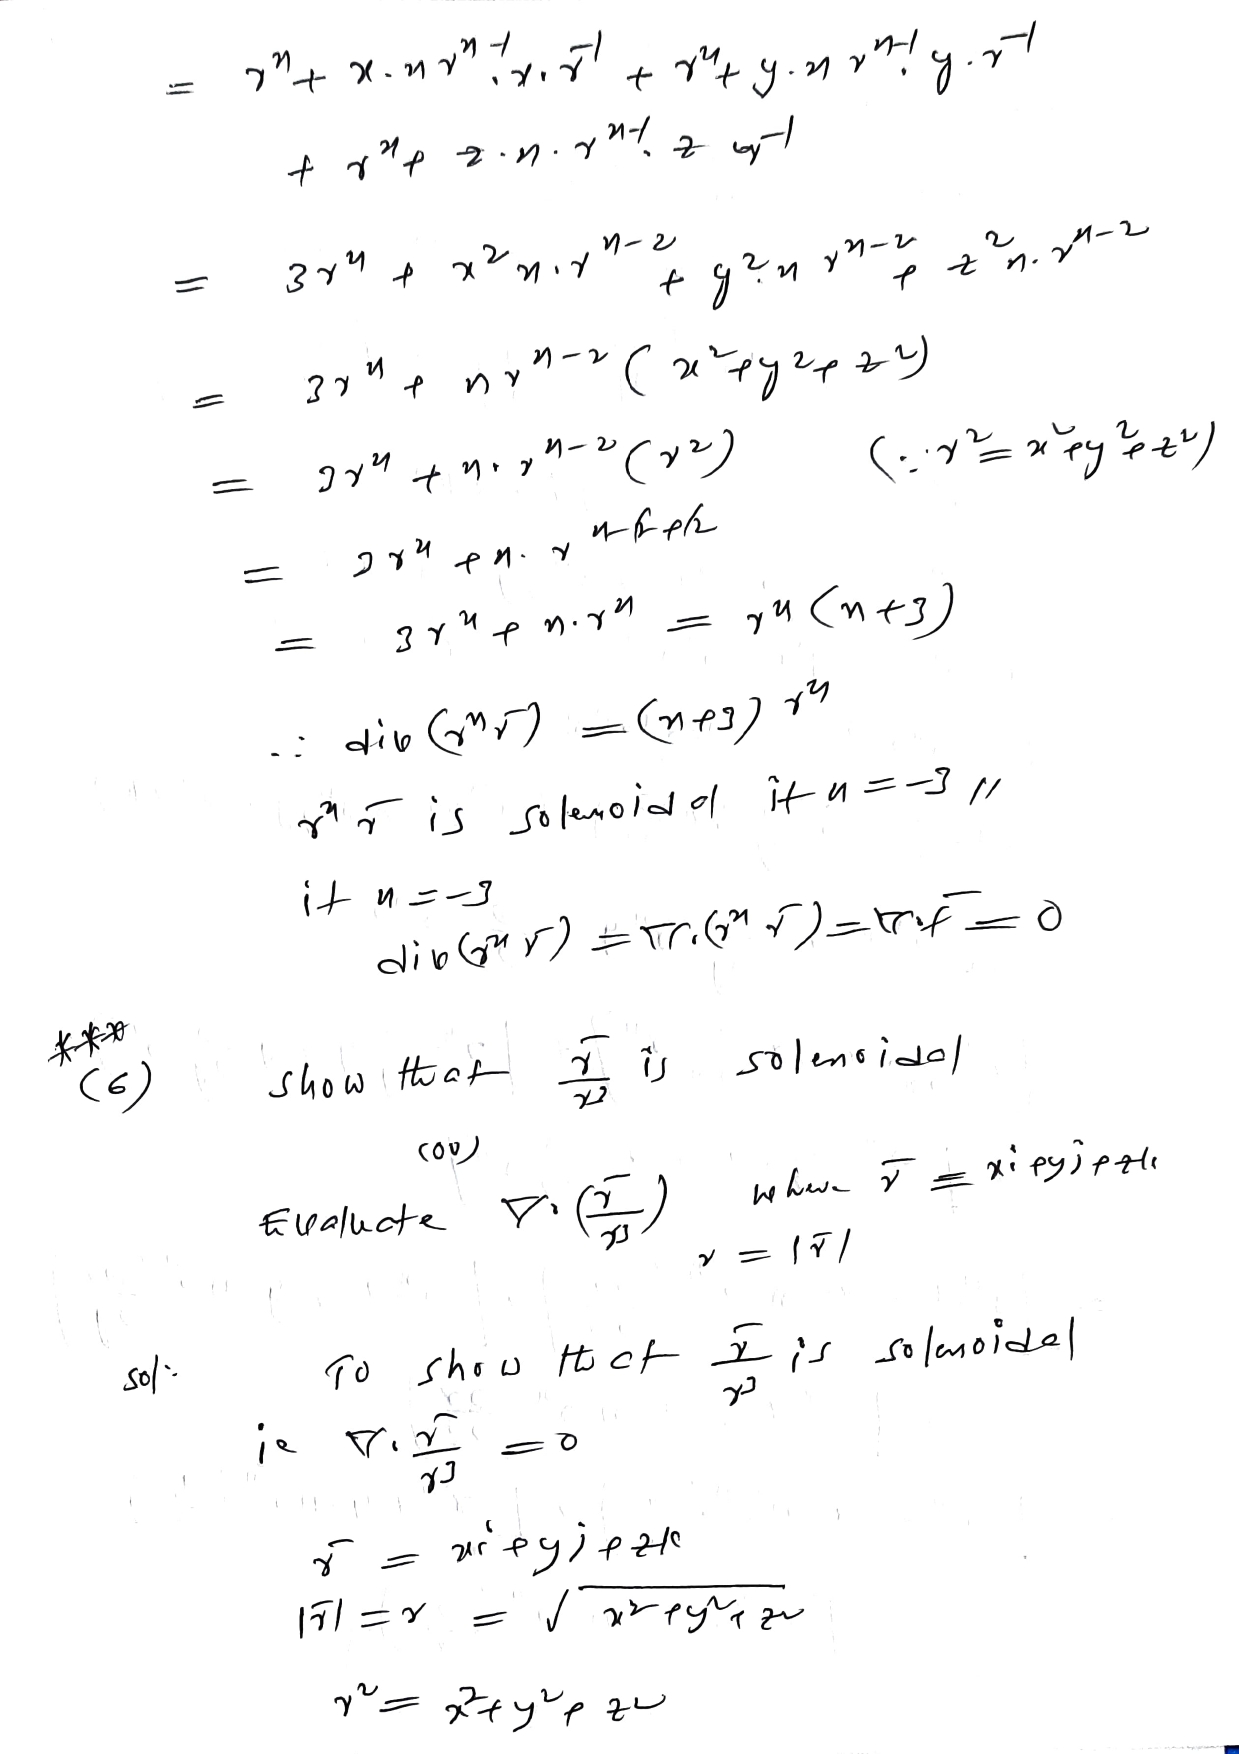 = rⁿ + x.n rⁿ⁻¹.x.r⁻¹ + rⁿ + y.n rⁿ⁻¹.y.r⁻¹
+ rⁿ + z.n.rⁿ⁻¹.z r⁻¹
= 3rⁿ + x² n.rⁿ⁻² + y².n rⁿ⁻² + z² n.rⁿ⁻²
= 3rⁿ + n rⁿ⁻² (x²+y²+z²)
= 3rⁿ + n.rⁿ⁻² (r²) (∵ r² = x²+y²+z²)
= 3rⁿ + n.rⁿ⁻²⁺²
= 3rⁿ + n.rⁿ = rⁿ (n+3)
∴ div (rⁿ r̄) = (n+3) rⁿ
rⁿ r̄ is solenoidal if n = -3 //
if n = -3
div (rⁿ r̄) = ∇.(rⁿ r̄) = ∇.f̄ = 0
***
(6) Show that r̄/r³ is solenoidal
(or)
Evaluate ∇.(r̄/r³) where r̄ = xi+yj+zk
r = |r̄|
sol: To show that r̄/r³ is solenoidal
ie ∇.r̄/r³ = 0
r̄ = xi+yj+zk
|r̄| = r = √x²+y²+z²
r² = x²+y²+z²